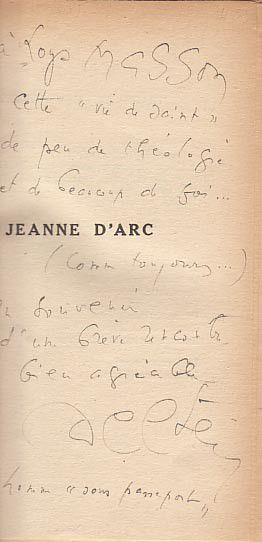 à Loys Masson
cette "vie de saint"
de peu de théologie
et de beaucoup de foi...
JEANNE D'ARC
(comme toujours...)
en souvenir
d'une brève rencontre
bien agréable
Delteil
homme "sans passeport"